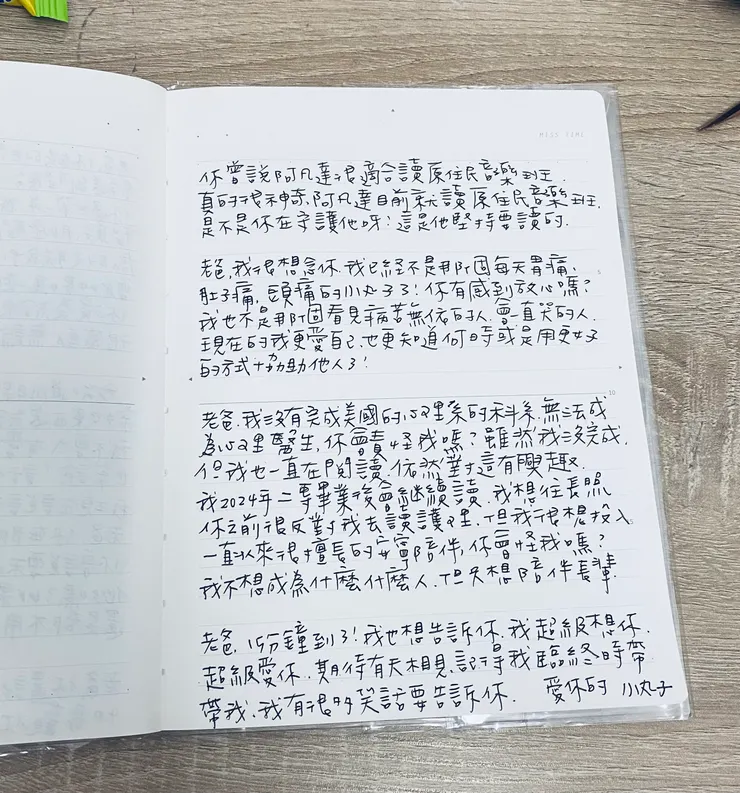 MISS TIME
你曾說阿凡達很適合讀原住民音樂班.
真的很神奇,阿凡達目前就讀原住民音樂班.
是不是你在守護他呀?這是他堅持要讀的.
老爸,我很想念你.我已経不是那個每天胃痛.
肚子痛,頭痛的小丸子了!你有感到放心嗎?
我也不是那個看見病苦無依的人.會一直哭的人.
現在的我更愛自己.也更知道何時或是用更好
的方式協助他人了!
10
老爸.我沒有完成美國的心理系的科系.無法成
為心理醫生,你會責怪我嗎?雖然我沒完成.
但我也一直在閱讀.依然對這有興趣.
我2024年二專畢業後會継續讀.我想往長照
你之前很反對我去讀護理.但我很想投入
一直以來很擅長的安寧陪伴,你會怪我嗎?
我不想成為什麼什麼人.但只想陪伴長輩.
老爸,15分鐘到了!我也想告訴你.我超級想你.
超級愛你.期待有天相見.記得我臨終時帶
帶我.我有很多笑話要告訴你. 愛你的 小丸子